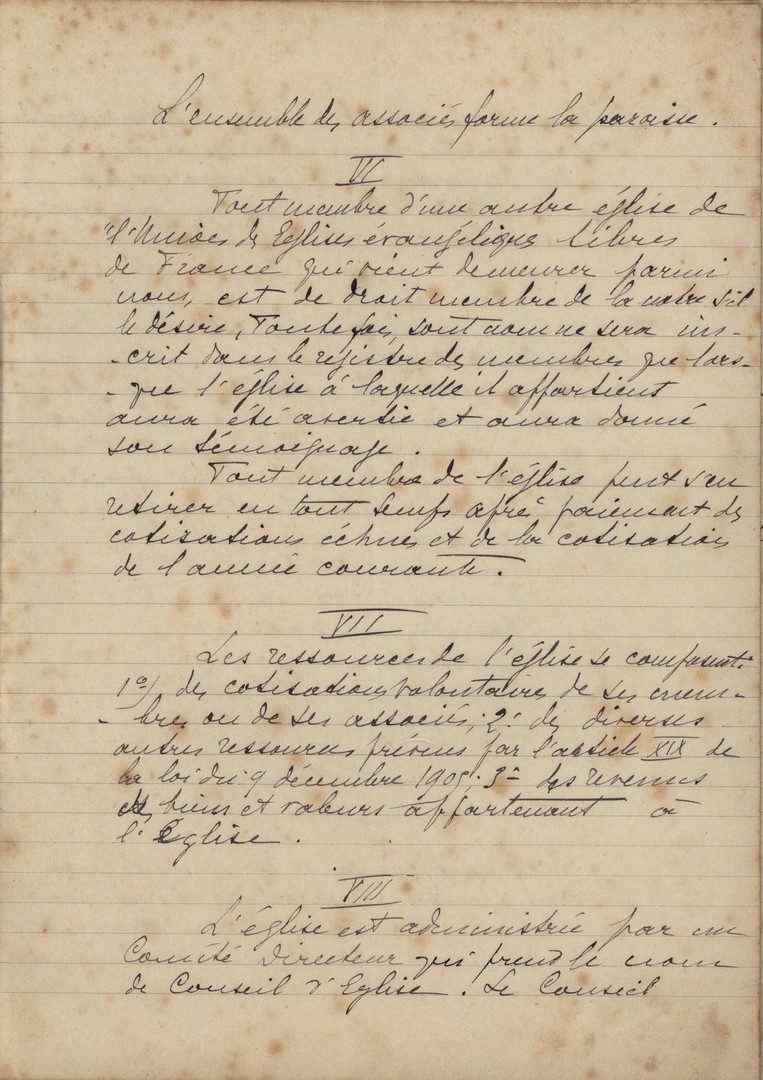 L'ensemble des associés forme la paroisse.
VI
Tout membre d'une autre église de
"l'Union des Eglises évangéliques libres
de France qui vient demeurer parmi
nous, est de droit membre de la notre s'il
le désire, Toutefois, sont nom ne sera ins-
-crit dans le registre des membres que lors-
-que l'église à laquelle il appartient
aura été avertie et aura donné
son témoignage.
Tout membre de l'église peut s'en
retirer en tout temps après paiement des
cotisations échues et de la cotisation
de l'année courante.
VII
Les ressources de l'église se composent:
1º/ des cotisations volontaires de ses mem-
-bres ou de ses associés; 2º des diverses
autres ressources prévues par l'article XIX de
la loi du 9 décembre 1905; 3º des revenus
des biens et valeurs appartenant à
l'Eglise.
VIII
L'église est administrée par un
Comité Directeur qui prend le nom
de Conseil d'Eglise. Le Conseil